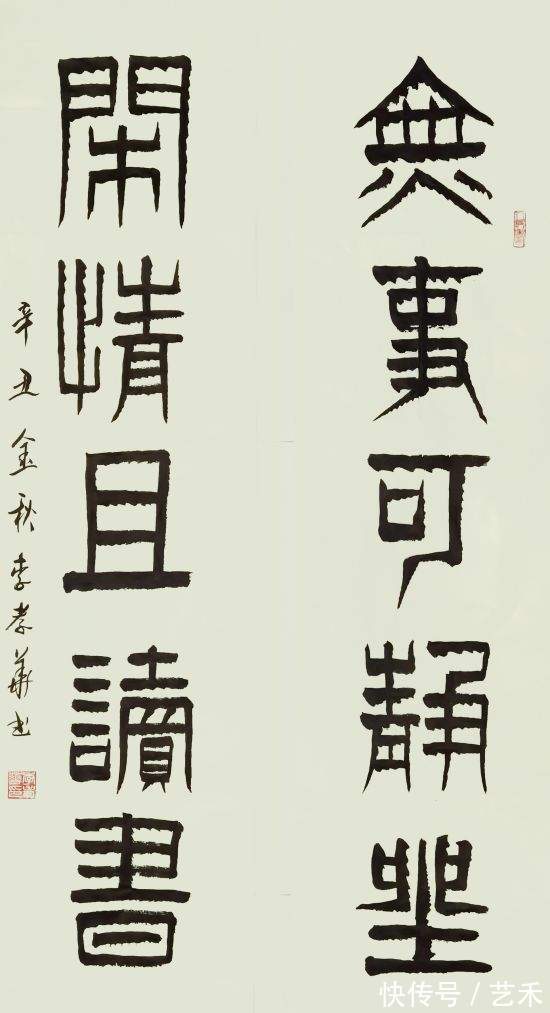 無事可靜坐
閑情且讀書
辛丑金秋李孝華书
快传号／艺禾